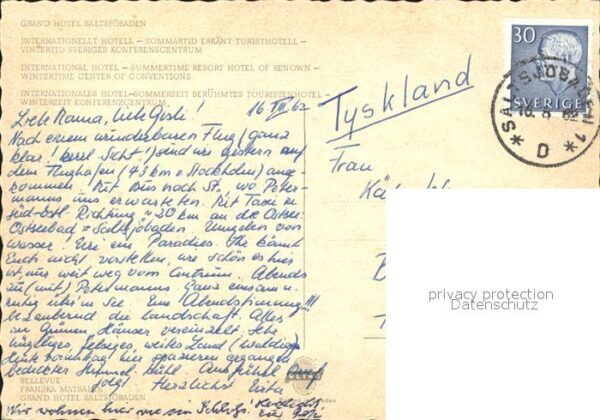 GRAND HOTEL SALTSJÖBADEN
INTERNATIONELLT HOTELL – SOMMARTID ERKÄNT TURISTHOTELL –
VINTERTID SVERIGES KONFERENSCENTRUM
INTERNATIONAL HOTEL – SUMMERTIME RESORT HOTEL OF RENOWN –
WINTERTIME CENTER OF CONVENTIONS
INTERNATIONALES HOTEL – SOMMERZEIT BERÜHMTES TOURISTENHOTEL –
WINTERZEIT KONFERENZCENTRUM
16 VIII 62
Liebe Mama, liebe Gisli!
Nach einem wunderbaren Flug (ganz
klar! Sicht!) sind wir gestern auf
dem Flughafen (43 km v Stockholm) ange-
kommen. Mit Bus nach St., wo Peter-
manns uns erwarteten. Mit Taxi in
Süd-östl. Richtung 20 km an die Ostsee.
Ostseebad = Saltsjöbaden. Umgeben von
Wasser! Wie ein Paradies. Ihr könnt
Euch nicht vorstellen, wie schön es hier
ist, nur weit weg vom Centrum. Abends
zu (mit) Petermanns. Ganz einsam u.
ruhig am See. Eine Abendstimmung!!!
Bezaubernd die Landschaft. Alles
im Grünen, Häuser vereinzelt. Sehr
hügeliges, felsiges, weites Land (waldig)
Heute vormittag hier spazieren gegangen
Bedeckter Himmel. Kühl. Ausführl. Brief
folgt Herzlichst
Wir wohnen hier wie im Schloß!
BELLEVUE
FRANSKA MATSALEN
GRAND HOTEL SALTSJÖBADEN
Tyskland
Frau
30
SVERIGE
SALTSJÖBADEN 1
D
privacy protection
Datenschutz